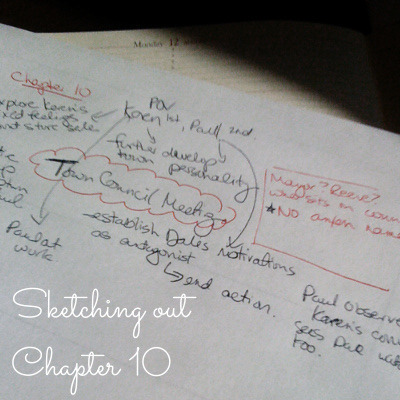 Monday 12
Chapter 10
explore Karen's
mixed feelings
POV
Karen 1st, Paul 2nd
further develop
town personality
Town Council Meeting
Paul at
work
establish Dale's motivations
as antagonist
end action.
Mayor? Reeve?
who sits on
* NO
Paul observe
Karen's
sees
too.
Sketching out
Chapter 10